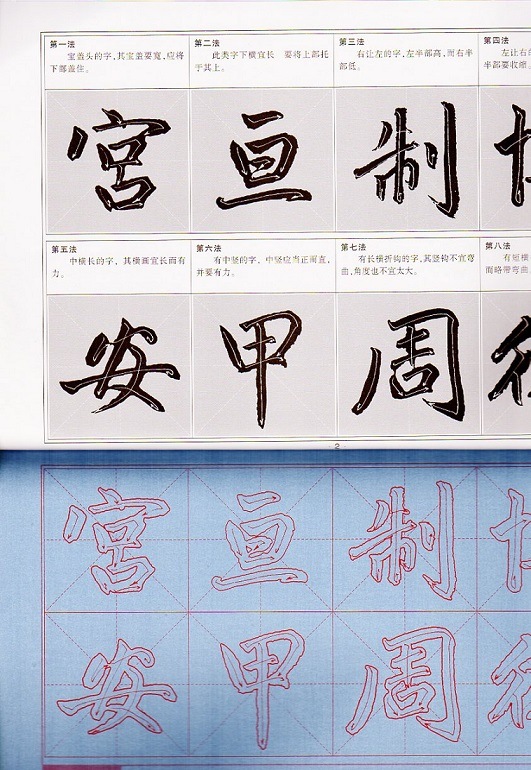 第一法
宝盖头的字，其宝盖要宽，应将
下部盖住。
第二法
此类字下横宜长 要将上部托
于其上。
第三法
右让左的字，左半部高，而右半
部低。
第四法
左让右的
半部要收缩。
宫
亘
制
第五法
中横长的字，其横画宜长而有
力。
第六法
有中竖的字，中竖应当正而直，
并要有力。
第七法
有长横折钩的字，其竖钩不宜弯
曲，角度也不宜太大。
第八法
有短横
而略带弯曲
安
甲
周
2
宫
亘
制
安
甲
周